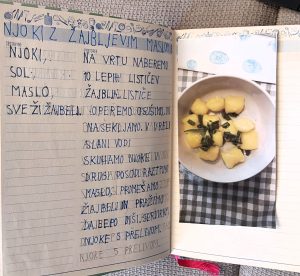 NJOKI Z ŽAJBLJEVIM MASLOM
NJOKI, NA VRTU NABEREMO
SOL, 10 LEPIH LISTIČEV
MASLO, ŽAJBLJA. LISTIČE
SVEŽI ŽAJBELJ. OPEREMO OSUŠIMO, IN
NASEKLJAMO. V VRELI
SLANI VODI
SKUHAMO NJOKE. V
DRUGI POSODI RAZTOPIMO
MASLO, PRIMEŠAMO
ŽAJBELJ IN PRAŽIMO,
DA LEPO DIŠI.
NJOKE S PRELIVOM.
NJOKE S PRELIVOM.